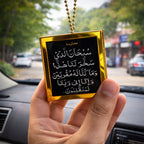 سُبْحَانَ الَّذِي
سَخَّرَ لَنَا هَٰذَا
وَمَا كُنَّا لَهُ مُقْرِنِينَ
وَإِنَّا إِلَىٰ رَبِّنَا
لَمُنْقَلِبُونَ